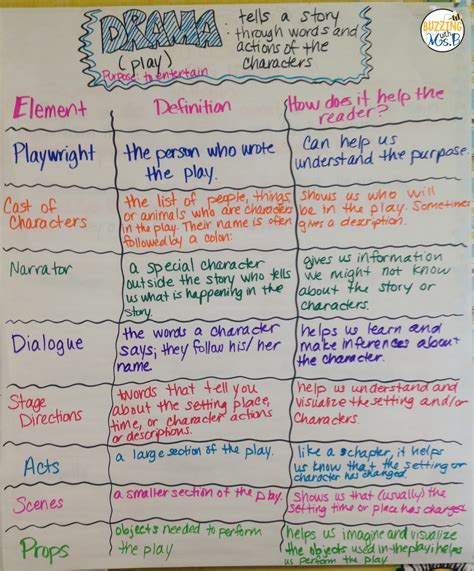 DRAMA:
(play)
Purpose: to entertain
tells a story
through words and
actions of the
characters
BUZZING
with
Ms. B
Element
Definition
How does it help the
reader?
Playwright
the person who wrote
the play.
can help us
understand the purpose.
Cast of
Characters
the list of people, things,
or animals who are characters
in the play. Their name is often
followed by a colon:
shows us who will
be in the play. Sometimes
gives a description.
Narrator
a special character
outside the story who tells
us what is happening in the
story.
gives us information
we might not know
about the story or
characters.
Dialogue
the words a character
says; they follow his/her
name.
helps us learn and
make inferences about
the character.
Stage
Directions
words that tell you
about the setting place,
time, or character actions
or descriptions.
help us understand and
visualize the setting and/or
characters.
Acts
a large section of the play.
like a chapter, it helps
us know that the setting or
character has changed.
Scenes
a smaller section of the play.
shows us that (usually) the
setting time or place has changed.
Props
objects needed to perform
the play
helps us imagine and visualize
the objects used in the play; helps
us perform the play